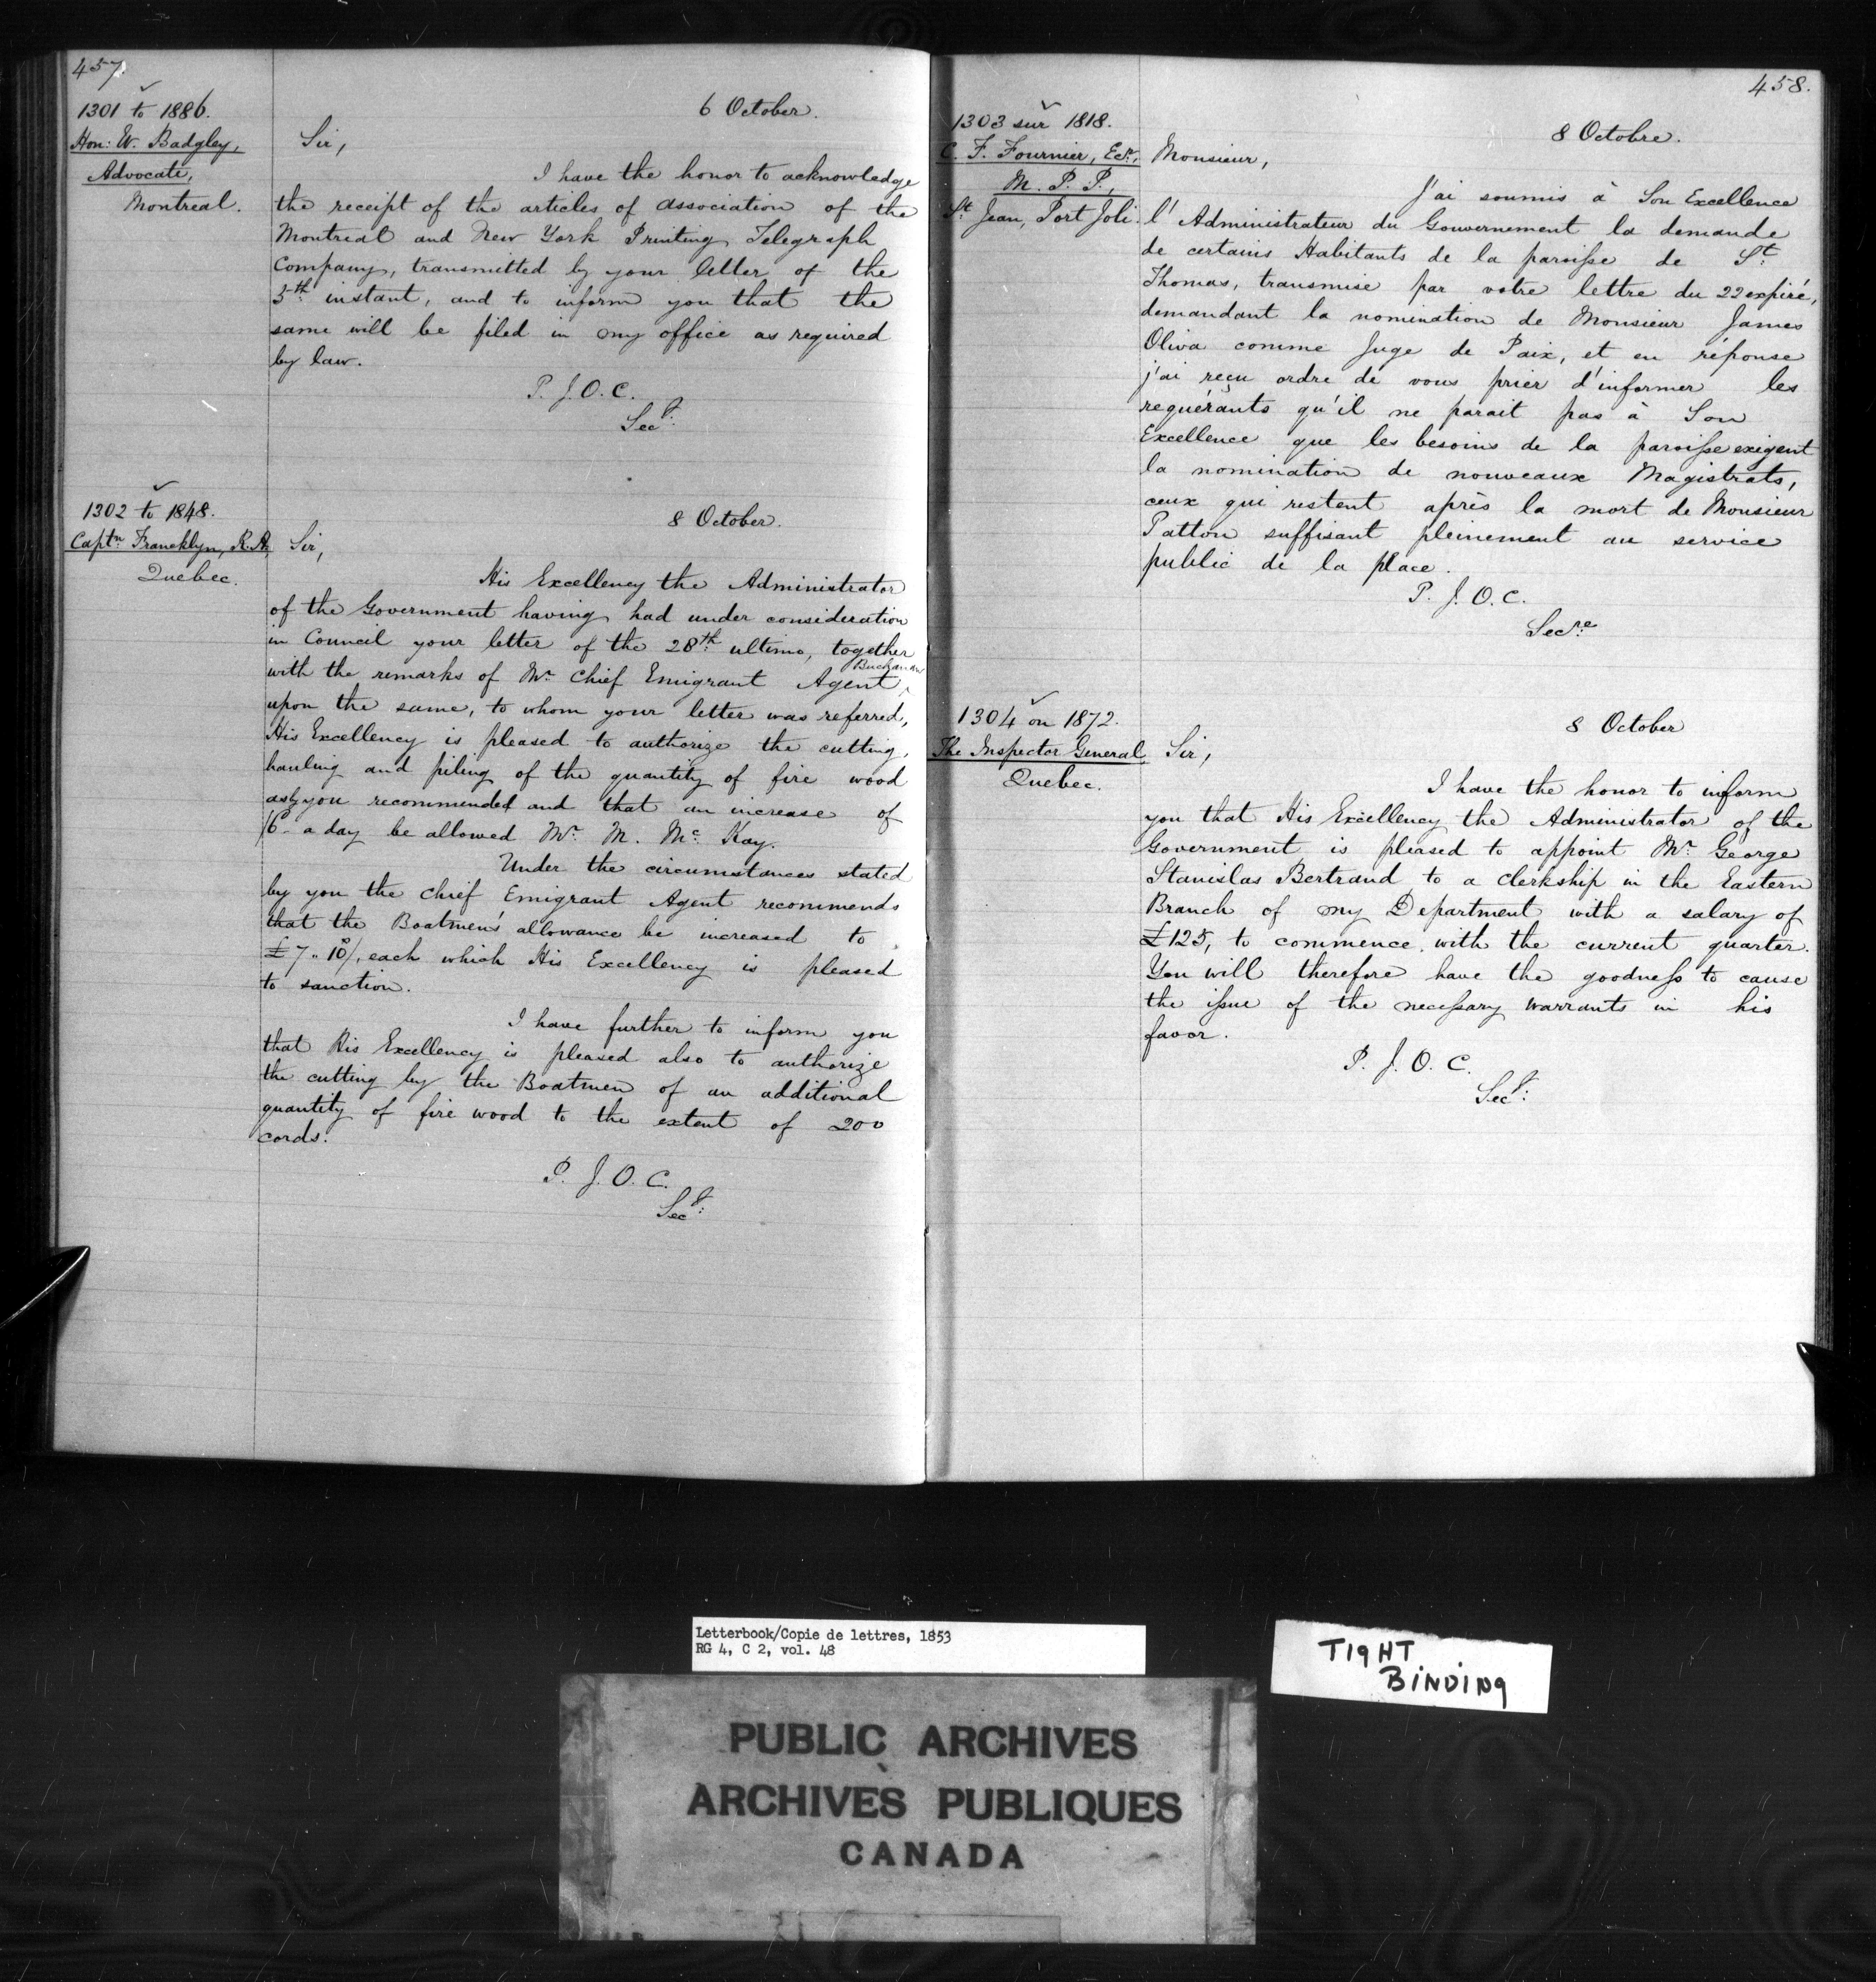 457.
1301 to 1886.
Hon: W. Badgley,
Advocate,
Montreal.
6 October.
Sir,
I have the honor to acknowledge
the receipt of the articles of association of the
Montreal and New York Printing Telegraph
Company, transmitted by your letter of the
5th instant, and to inform you that the
same will be filed in my office as required
by law.
P. J. O. C.
Secy:
1302 to 1848.
Captn Francklyn, R.A.
Quebec.
8 October.
Sir,
His Excellency the Administrator
of the Government having had under consideration
in Council your letter of the 28th ultimo, together
with the remarks of Mr Chief Emigrant Agent ^ Buchanan
upon the same, to whom your letter was referred,
His Excellency is pleased to authorize the cutting,
hauling and piling of the quantity of fire wood
you recommended and that an increase of
/6 a day be allowed Mr M. Mc Kay.
Under the circumstances stated
by you the chief Emigrant Agent recommends
that the Boatmen's allowance be increased to
£7..10/. each which His Excellency is pleased
to sanction.
I have further to inform you
that His Excellency is pleased also to authorize
the cutting by the Boatmen of an additional
quantity of fire wood to the extent of 200
cords.
P. J. O. C.
Secy:
458.
1303 sur 1818.
C. F. Fournier, Ecr,
M. P. P.,
St Jean, Port Joli.
8 Octobre.
Monsieur,
J'ai soumis à Son Excellence
l'Administrateur du Gouvernement la demande
de certains Habitants de la paroisse de St
Thomas, transmise par votre lettre du 22 expiré,
demandant la nomination de Monsieur James
Oliva comme Juge de Paix, et en réponse
j'ai reçu ordre de vous prier d'informer les
requérants qu'il ne parait pas à Son
Excellence que les besoins de la paroisse exigent
la nomination de nouveaux Magistrats,
ceux qui restent après la mort de Monsieur
Patton suffisant pleinement au service
public de la place.
P. J. O. C.
Secre
1304 on 1872.
The Inspector General,
Quebec.
8 October
Sir,
I have the honor to inform
you that His Excellency the Administrator of the
Government is pleased to appoint Mr George
Stanislas Bertrand to a clerkship in the Eastern
Branch of my Department with a salary of
£125, to commence with the current quarter.
You will therefore have the goodness to cause
the issue of the necessary warrants in his
favor.
P. J. O. C.
Secy:
Letterbook/Copie de lettres, 1853
RG 4, C 2, vol. 48
TIGHT
BINDING
PUBLIC ARCHIVES
ARCHIVES PUBLIQUES
CANADA